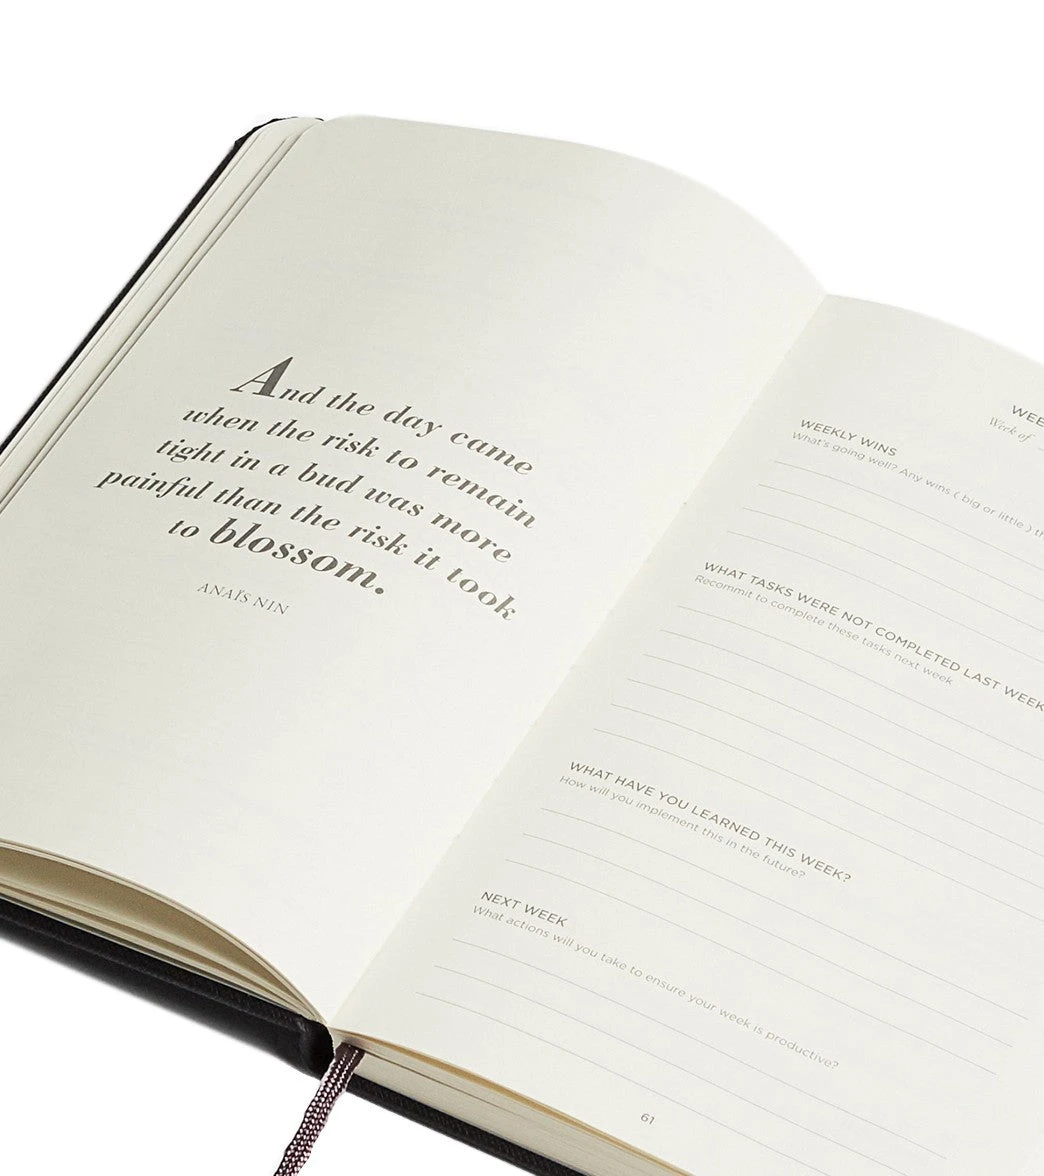 And the day came
when the risk to remain
tight in a bud was more
painful than the risk it took
to blossom.
ANAÏS NIN
Week of
WEEKLY WINS
What's going well? Any wins ( big or little )
WHAT TASKS WERE NOT COMPLETED LAST WEEK
Recommit to complete these tasks next week
WHAT HAVE YOU LEARNED THIS WEEK?
How will you implement this in the future?
NEXT WEEK
What actions will you take to ensure your week is productive?
61